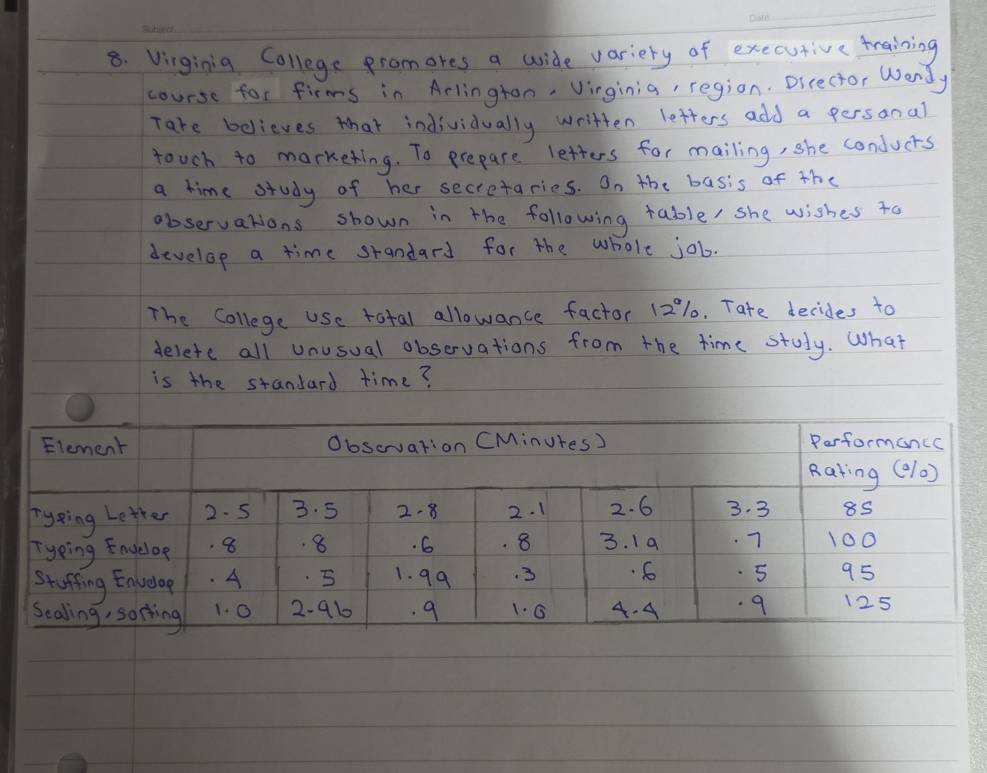 Subject
Date
8. Virginia College promotes a wide variety of executive training
course for firms in Arlington, Virginia, region. Director Wendy
Tate believes that individually written letters add a personal
touch to marketing. To prepare letters for mailing, she conducts
a time study of her secretaries. On the basis of the
observations shown in the following table, she wishes to
develop a time standard for the whole job.
The College use total allowance factor 12%. Tate decides to
delete all unusual observations from the time study. What
is the standard time?
Element Observation (Minutes) Performance
Rating (%)
Typing Letter 2.5 3.5 2.8 2.1 2.6 3.3 85
Typing Envelop .8 .8 .6 .8 3.1a .7 100
Stuffing Envelop .4 .5 1.9a .3 .6 .5 95
Sealing, sorting 1.0 2.9b .9 1.0 4.4 .9 125